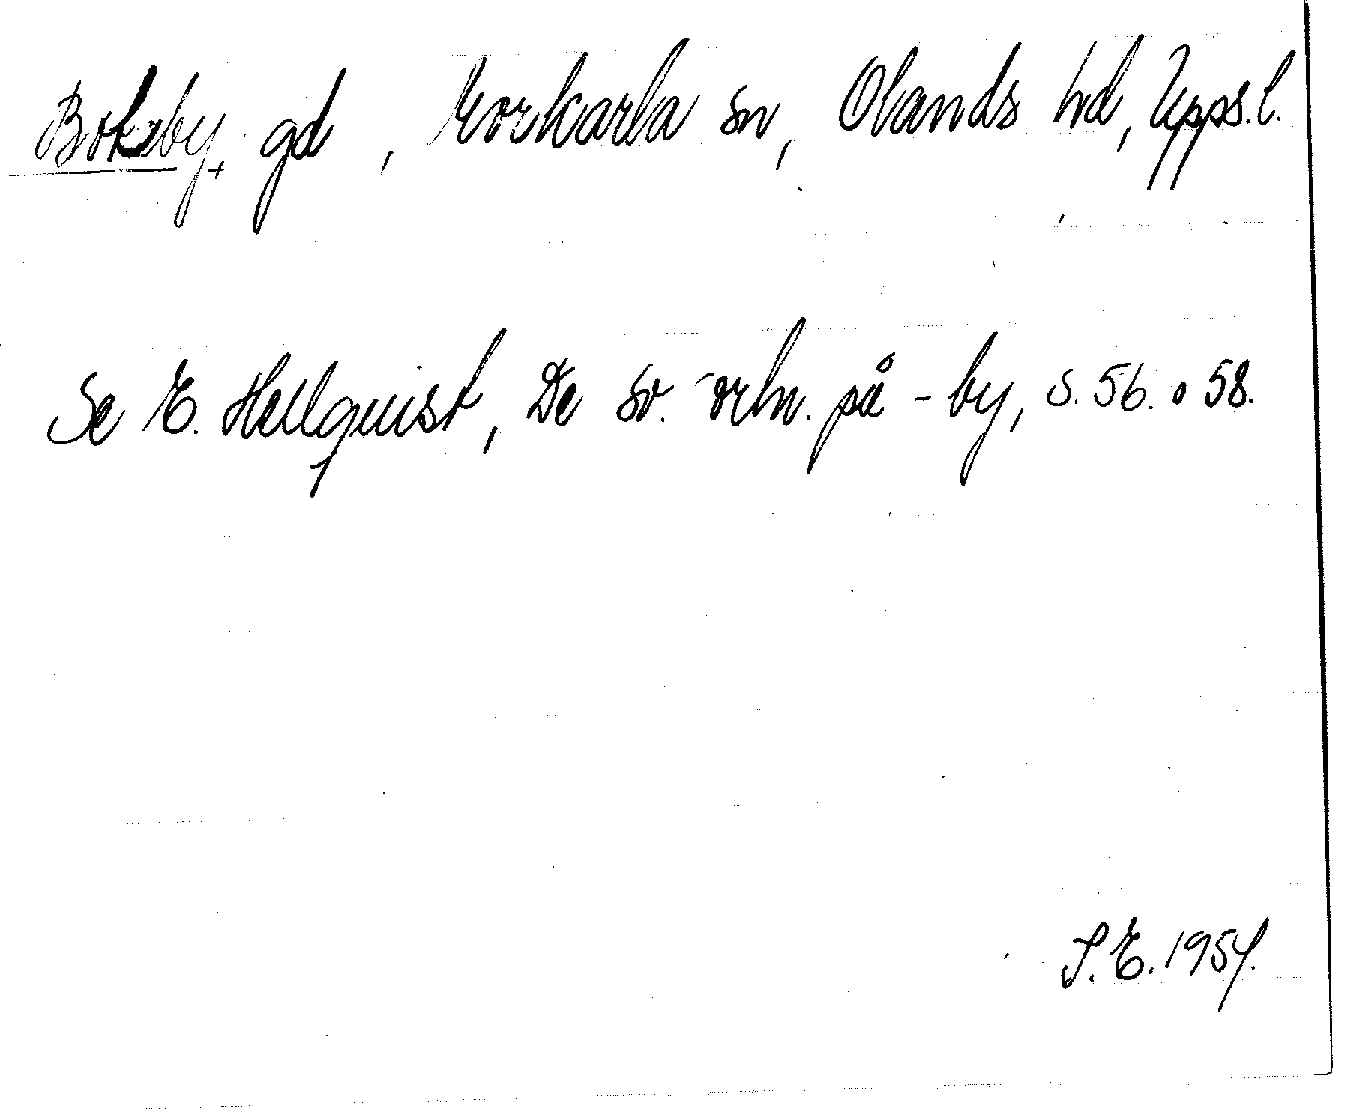 Boksby, gd, Morkarla sn, Olands hd, Upps. l.
Se E. Hellquist, De sv. ortn. på -by, s. 56. o 58.
S. E. 1954.